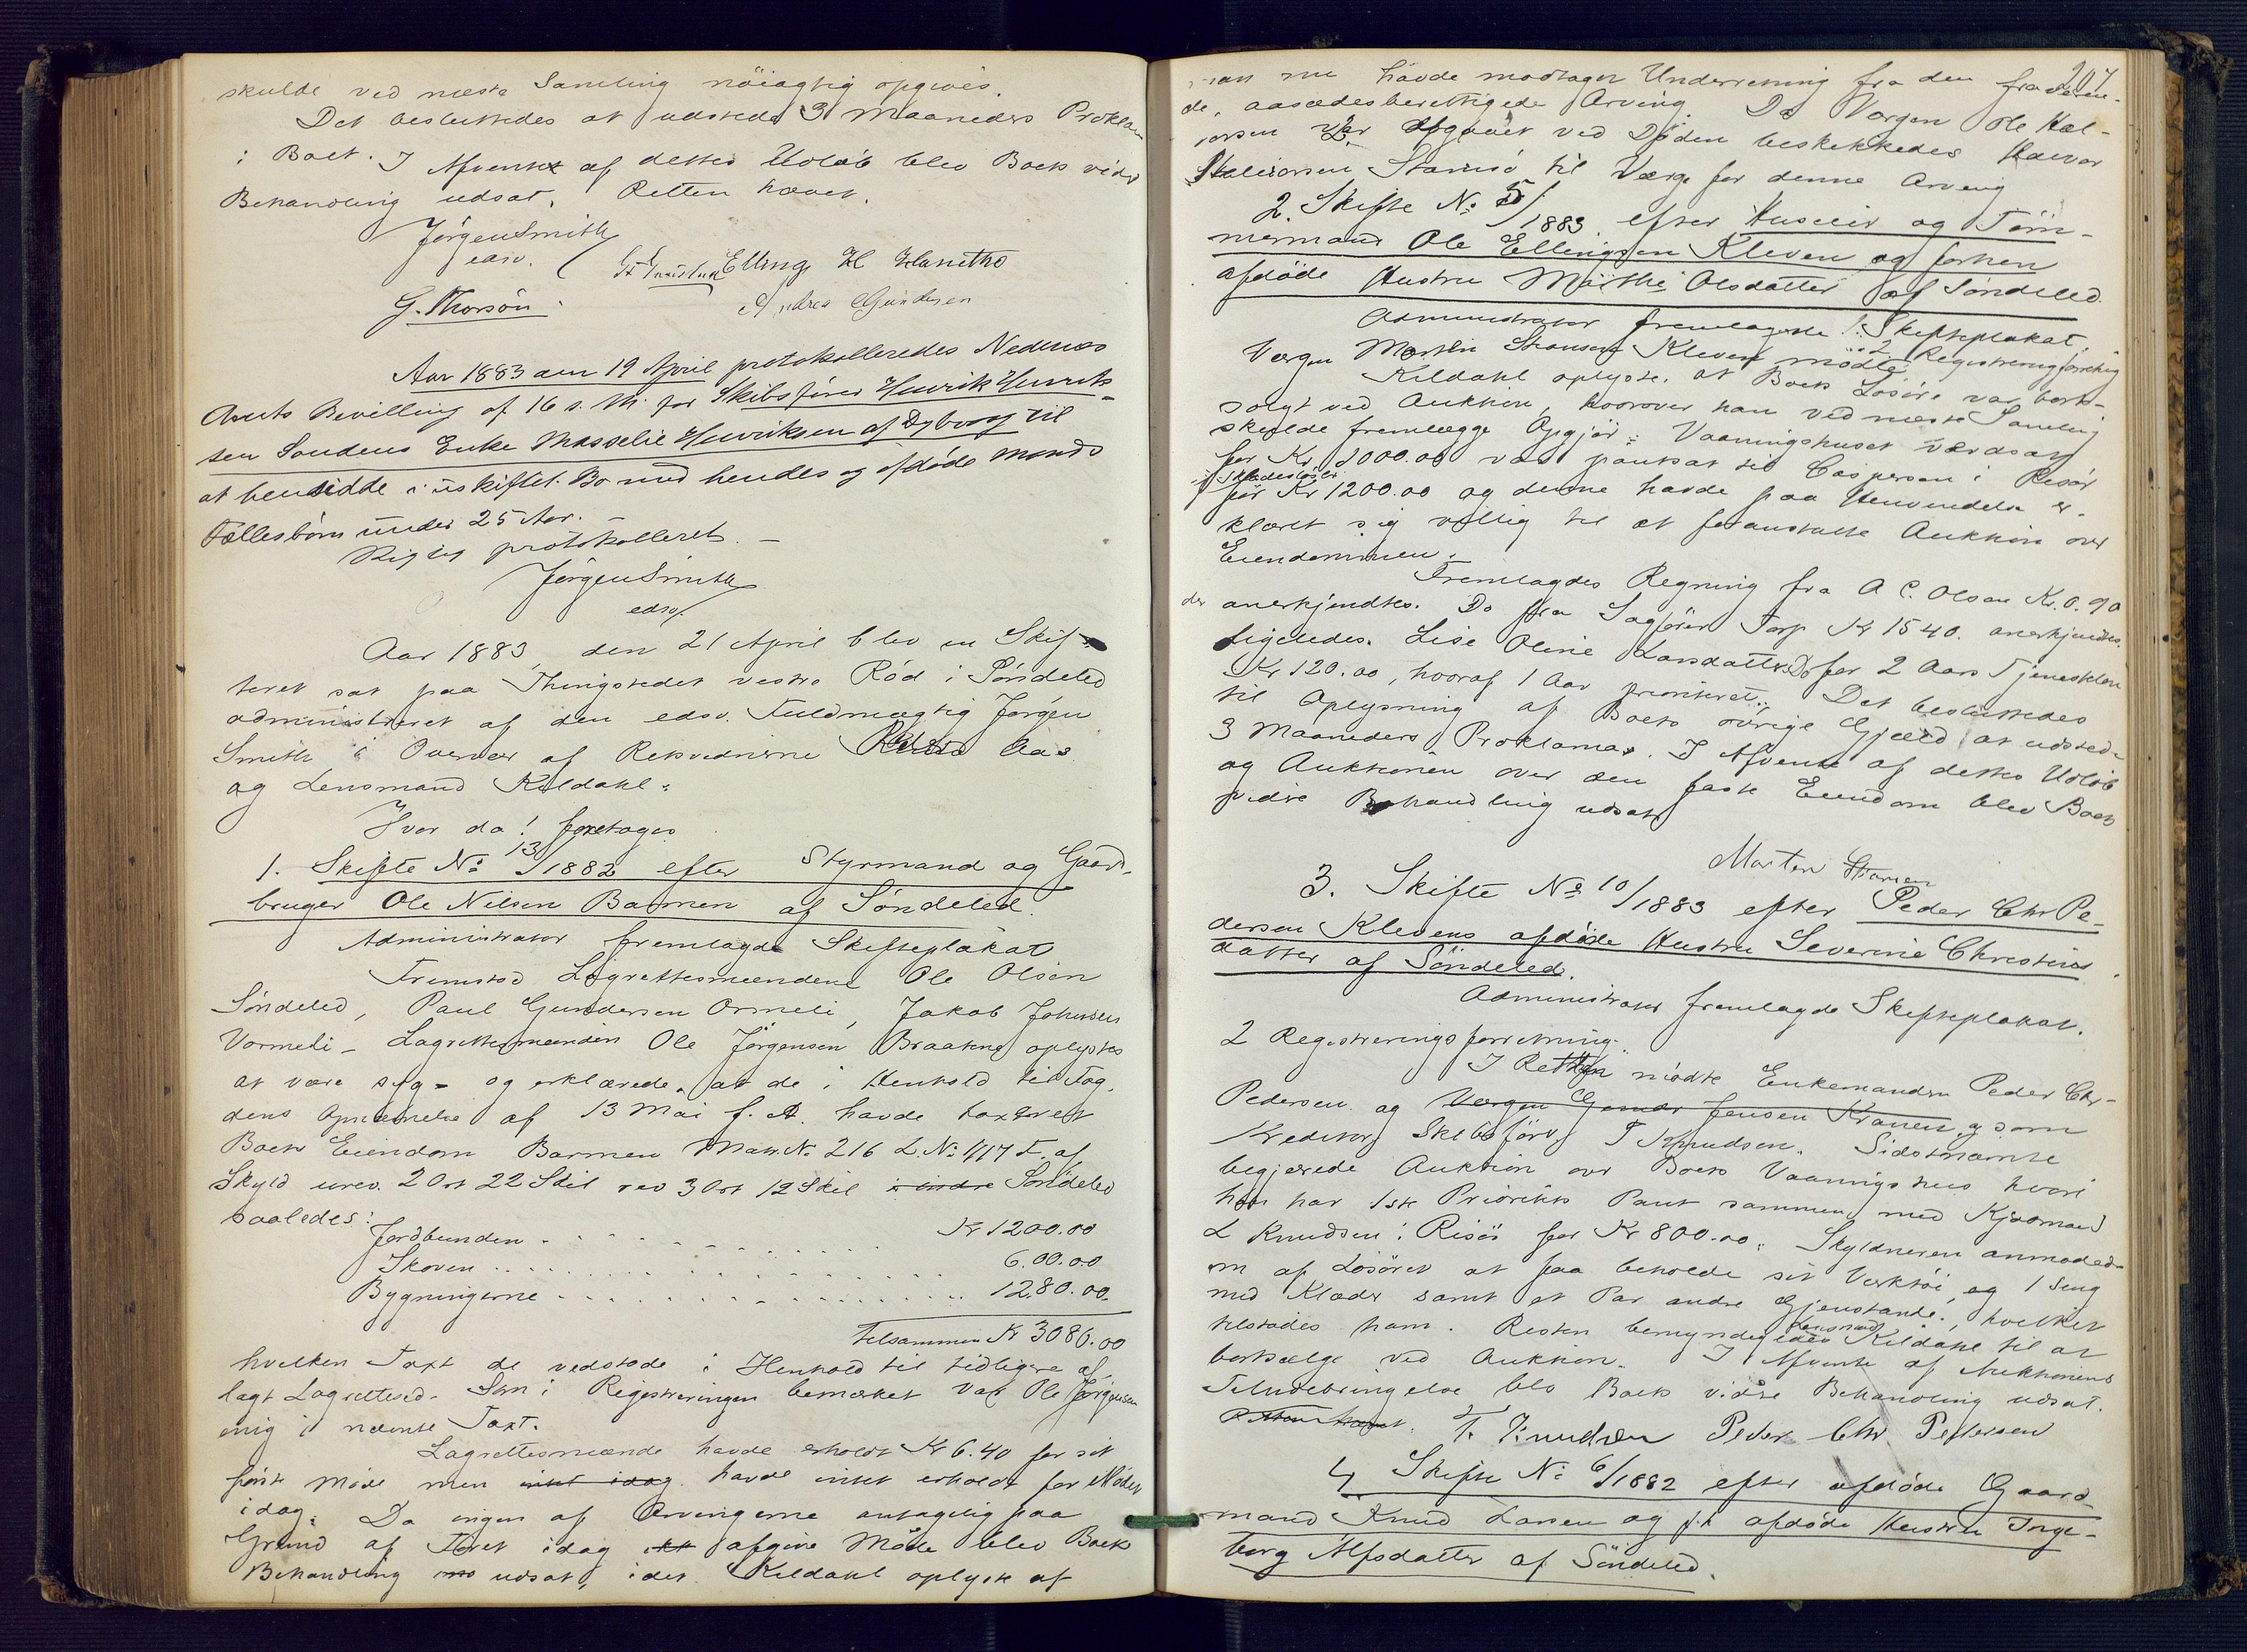 skulde ved næste Samling nöiagtig opgives.
Det besluttedes at udstede 3 Maaneders Proklama
i Boet. I Afvente af dettes Udløb blev Boets videre
Behandling udsat. Retten hævet.
Jørgen Smith
edsv.
Elling H Hanitho
G. Thorsön
Andrea Gundersen
Aar 1883 den 19 April protokolleredes Nedenæs
Amts Bevilling af 16 s. M. for Skibsfører Henrik Henrik-
sen Sondens Enke Masselie Henriksen af Dybvaag til
at hensidde i uskiftet Bo med hendes og afdøde Mands
Fællesbörn under 25 Aar.
Rigtig protokolleret.
Jørgen Smith
edsv.
Aar 1883 den 21 April blev en Skif-
teret sat paa Thingstedet vestre Röd i Söndeled
administreret af den edsv. Fuldmægtig Jørgen
Smith i Overvær af Retsvidnerne Aas
og Lensmand Kildahl.
Hvor da! foretoges
1. Skifte No 13/1882 efter Styrmand og Gaard-
bruger Ole Nilsen Barmen af Söndeled.
Administrator fremlagde Skifteplakat
Fremstod Lagrettesmændene Ole Olsen
Söndeled, Paul Gundersen Ormeli, Jakob Johnsen
Vormeli - Lagrettesmanden Ole Jörgensen Braatene oplystes
at være syg - og erklærede, at de i Henhold til Fog-
dens Opnævnelse af 13 Mai f. A. havde taxeret
Boets Eiendom Barmen Matr. No 216 L. No 117 f. af
Skyld urev. 2 Ort 22 Skil rev 3 Ort 12 Skil i indre Söndeled
saaledes:
Jordbunden Kr 1200.00
Skoven 6.00.00
Bygningerne 1280.00
tilsammen Kr 3080.00
hvilken Taxt de vedstode i Henhold til tidligere af-
lagt Lagretteed. Som i Registreringen bemærket var Ole Jørgensen
enig i nævnte Taxt.
Lagrettesmændene havde erholdt Kr 6.40 for sit
förste Møde men intet idag havde intet erholdt for Mödet
idag. Da ingen af Arvingerne antagelig paa
Grund af Föret idag afgive Møde blev Boets
Behandling udsat, idet Kildahl oplyste at
207
man nu havde modtaget Underretning fra den fraværen-
de, aasædesberettigede Arving. Da Værgen Ole Hal-
vorsen var afgaaet ved Døden beskikkedes Halvor
Halvorsen Stamsö til Værge for denne Arving
2. Skifte No 5/1883 efter Huseier og Töm-
mermand Ole Ellingsen Kleven og forhen
afdöde Hustru Marthe Olsdatter af Söndeled.
Administrator fremlagde 1. Skifteplakat,
2 Registreringsforretning
Værgen Morten Hansen Kleven mödte.
Kildahl oplyste, at Boets Lösöre var bort-
solgt ved Auktion, hvorover han ved næste Samling
skulde fremlægge Opgjör. Vaaningshuset værdsat
for Kr. 1000.00 var pantsat til Caspersen i Risör
for Kr 1200.00 og denne havde paa Henvendelse er-
klæret sig villig til at foranstalte Auktion over
Eiendommen.
Fremlagdes Regning fra A C. Olsen Kr. 0.90
der anerkjendtes. Do fra Sagfører Torp Kr 15 40. anerkjendtes
ligeledes. Lise Oline Larsdatter Do for 2 Aars Tjenesteløn
Kr 120.00, hvoraf 1 Aar prioriteret. Det besluttedes
til Oplysning af Boets øvrige Gjæld at udstede
3 Maaneders Proklama. I Afvente af dettes Udløb
og Auktionen over den faste Eiendom blev Boets
videre Behandling udsat.
Morten Hansen
3. Skifte No 10/1883 efter Peder Chr Pe-
dersen Klevens afdöde Hustru Severine Christens
datter af Söndeled.
Administrator fremlagde Skifteplakat.
2 Registreringsforretning.
I Retten mødte Enkemanden Peder Chr.
Pedersen og Værgen Gunder Jensen Kranen og som
Kreditor Skibsfører T Knudsen. Sidstnævnte
begjærede Auktion over Boets Vaaningshus hvori
han har 1ste Prioritets Pant sammen med Kjøbmand
L Knudsen i Risör for Kr 800.00. Skyldneren anmodede
om af Lösöret at faa beholde sit Værktöi og 1 Seng
med Klæder samt et Par andre Gjenstande, hvilket
tilstodes ham. Resten bemyndigedes Lensmd Kildahl til at
bortsælge ved Auktion. I Afvente af Auktionens
Tilendebringelse blev Boets videre Behandling udsat.
Retten hævet. T. Knudsen Peder Chr. Pedersen
4. Skifte No 6/1882 efter afdøde Gaard-
mand Knud Larsen og f.k afdöde Hustru Inge-
borg Alfsdatter af Söndeled.